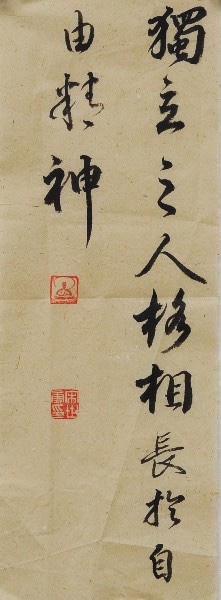 獨立之人格相長於自
由精神